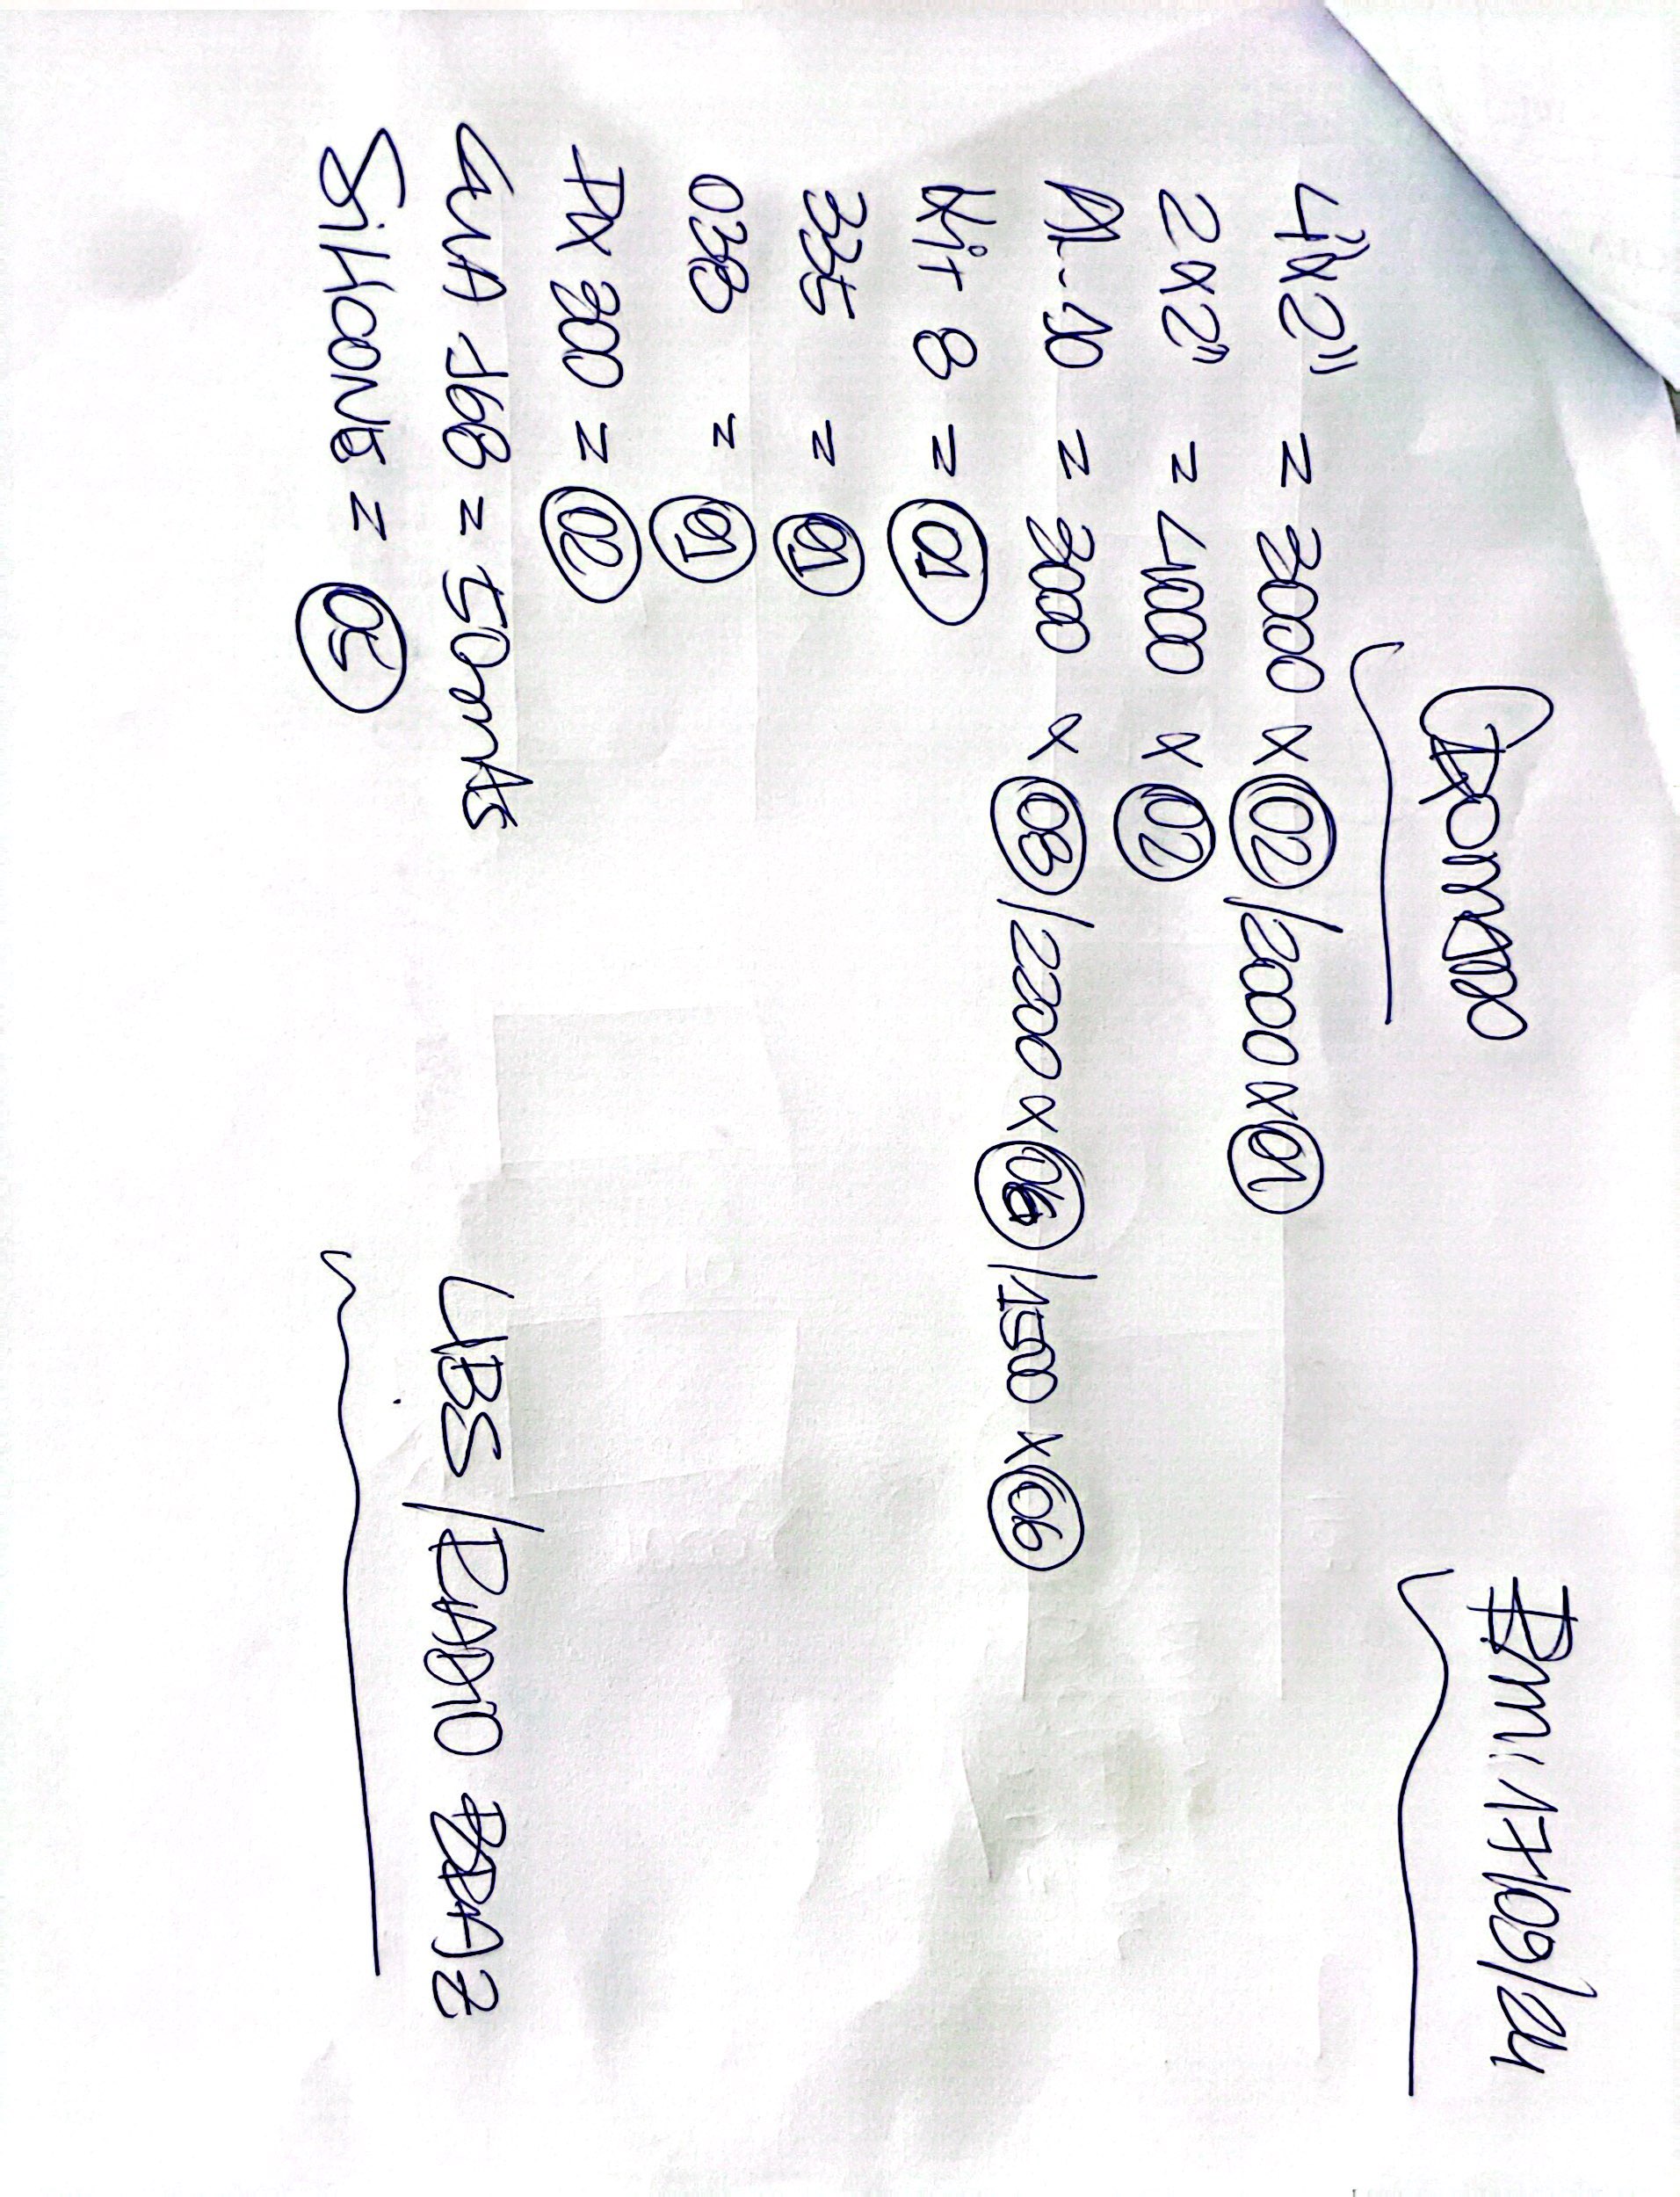 Cromado Em: 17/09/24
4"x2" = 3000 x 02 / 2000 x 01
2x2" = 4000 x 02
AL-10 = 3000 x 08 / 2200 x 06 / 1500 x 06
Kit 8 = 01
335 = 01
038 = 01
PX 300 = 02
168 = 50mts
Silicone = 05
UBS / RADIO BRAZ